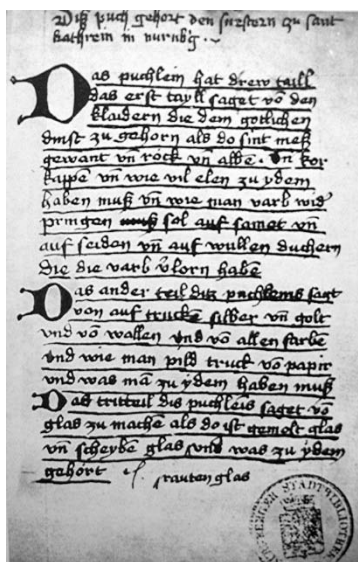 Ditz puch gehort den swestern zu sant
kathrein in nurnbg
Das puchlein hat drew taill
das erst tayll saget võ den
klaidern die dem gotlichen
dinst zu gehorn als do sint meß
gewant vñ rock vñ alben. Vñ kor
kapen vñ wie vil elen zu ydem
haben muß vñ wie man varb wid
pringen muß sol auf samet vñ
auf seiden vñ auf wullen duchern
die die varb v̓lorn haben
Das ander teil ditz puchleins sagt
von auf trucken silber vñ golt
vnd võ wollen vnd võ allen farbe
vnd wie man pild truck võ papir
vnd was mã zu ydem haben muß
Das tritteil dis puchleis saget võ
glas zu machen als do ist gemolt glas
vñ scheyben glas vnd was zu ydem
gehört rauten glas
STADTBIBLIOTHEK